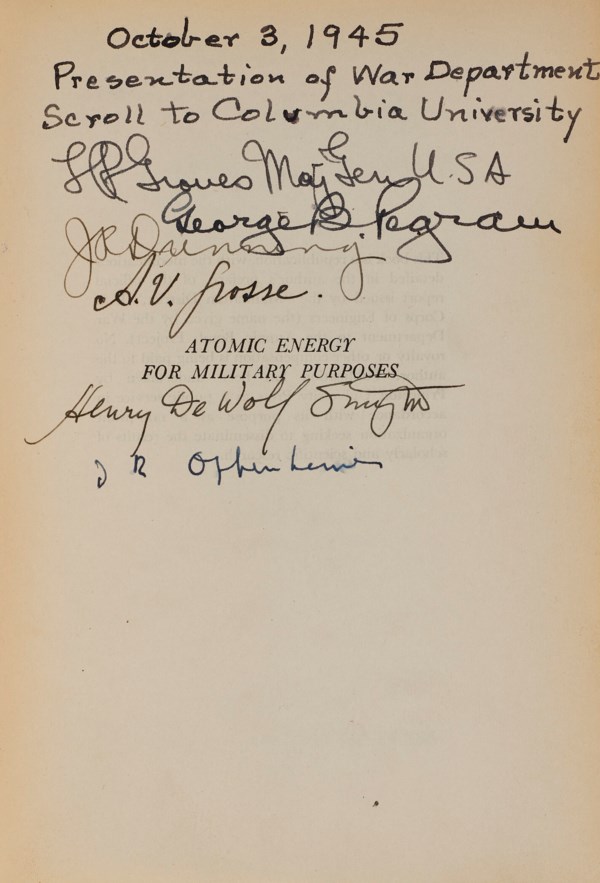 October 3, 1945
Presentation of War Department
Scroll to Columbia University
L R Groves Maj Gen U.S.A
George B. Pegram
J R Dunning
A. V. Grosse.
ATOMIC ENERGY
FOR MILITARY PURPOSES
Henry De Wolf Smyth
J R Oppenheimer